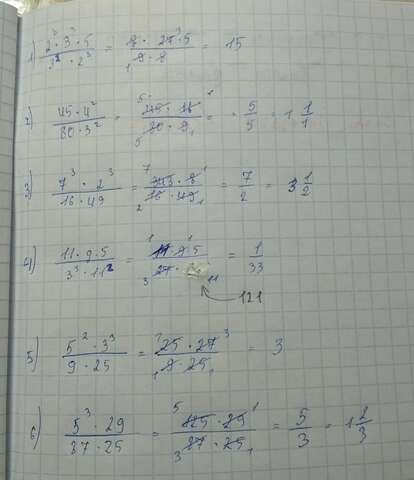 1) 2³ · 3³ · 5 / 3² · 2³ = 8 · 27 · 5 / 9 · 8 = 15
2) 45 · 4² / 80 · 3² = 45 · 16 / 80 · 9 = 5/5 = 1 1/1
3) 7³ · 2³ / 16 · 49 = 343 · 8 / 16 · 49 = 7/2 = 3 1/2
4) 11 · 9 · 5 / 3³ · 11² = 11 · 9 · 5 / 27 · = 1/33
121
5) 5² · 3³ / 9 · 25 = 25 · 27 / 9 · 25 = 3
6) 5³ · 29 / 87 · 25 = 125 · 29 / 87 · 25 = 5/3 = 1 2/3